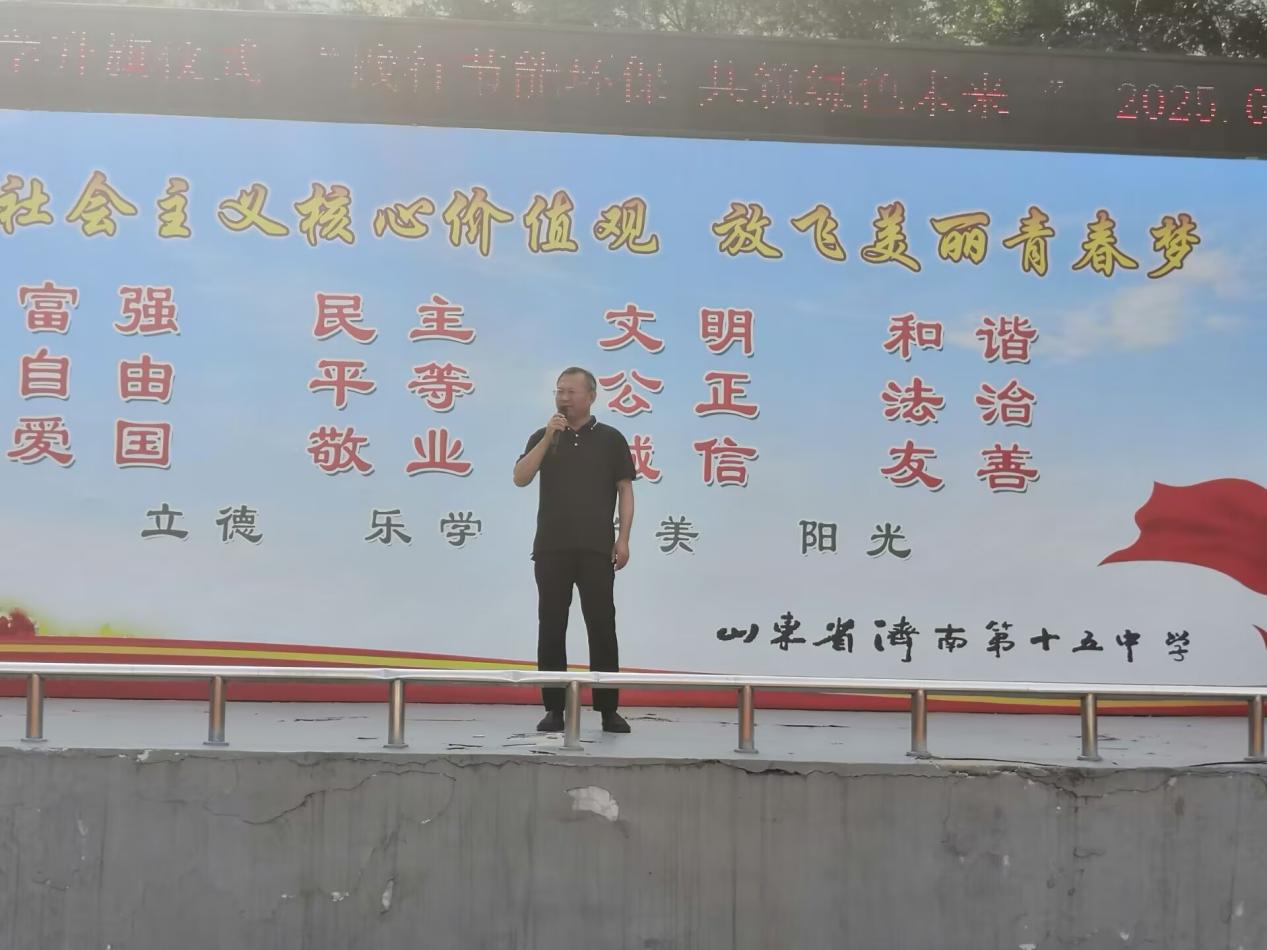 升旗仪式 “践行节能环保 共筑绿色未来” 2025.0
社会主义核心价值观 放飞美丽青春梦
富强 民主 文明 和谐
自由 平等 公正 法治
爱国 敬业 诚信 友善
立德 乐学 美 阳光
山东省濟南第十五中学